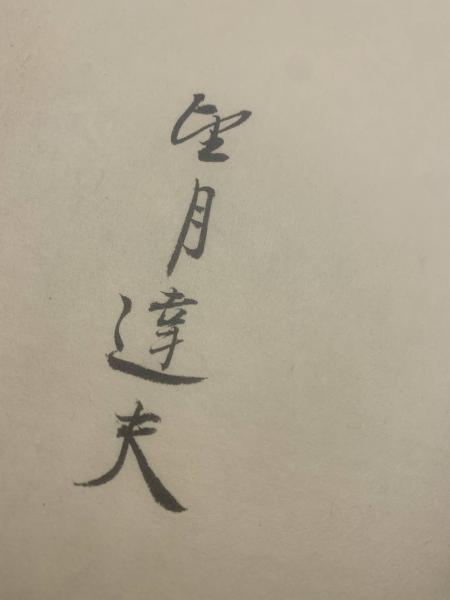 望月達夫